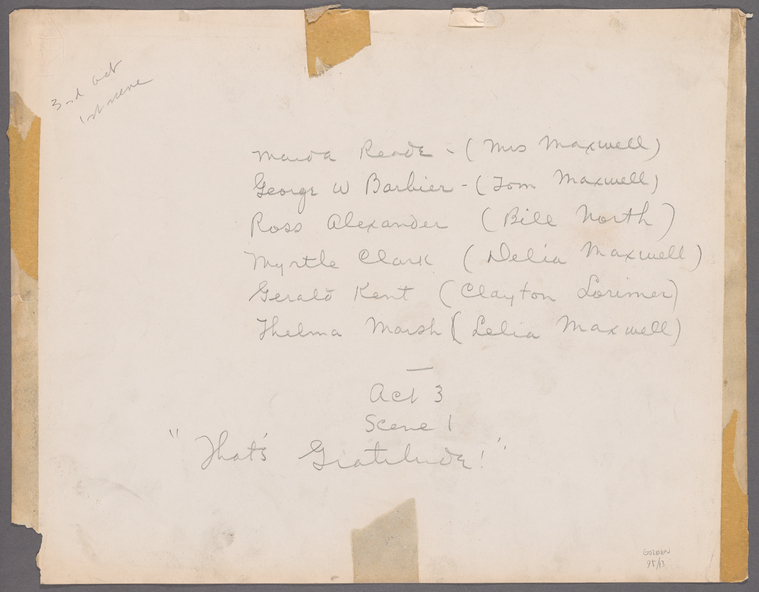 3rd act
1st scene
Maida Reade - (Mrs Maxwell)
George W Barbier - (Tom Maxwell)
Ross Alexander (Bill North)
Myrtle Clark (Delia Maxwell)
Gerald Kent (Clayton Lorimer)
Thelma Marsh (Lelia Maxwell)
Act 3
Scene 1
"That's Gratitude!"
GOLDEN
95/11